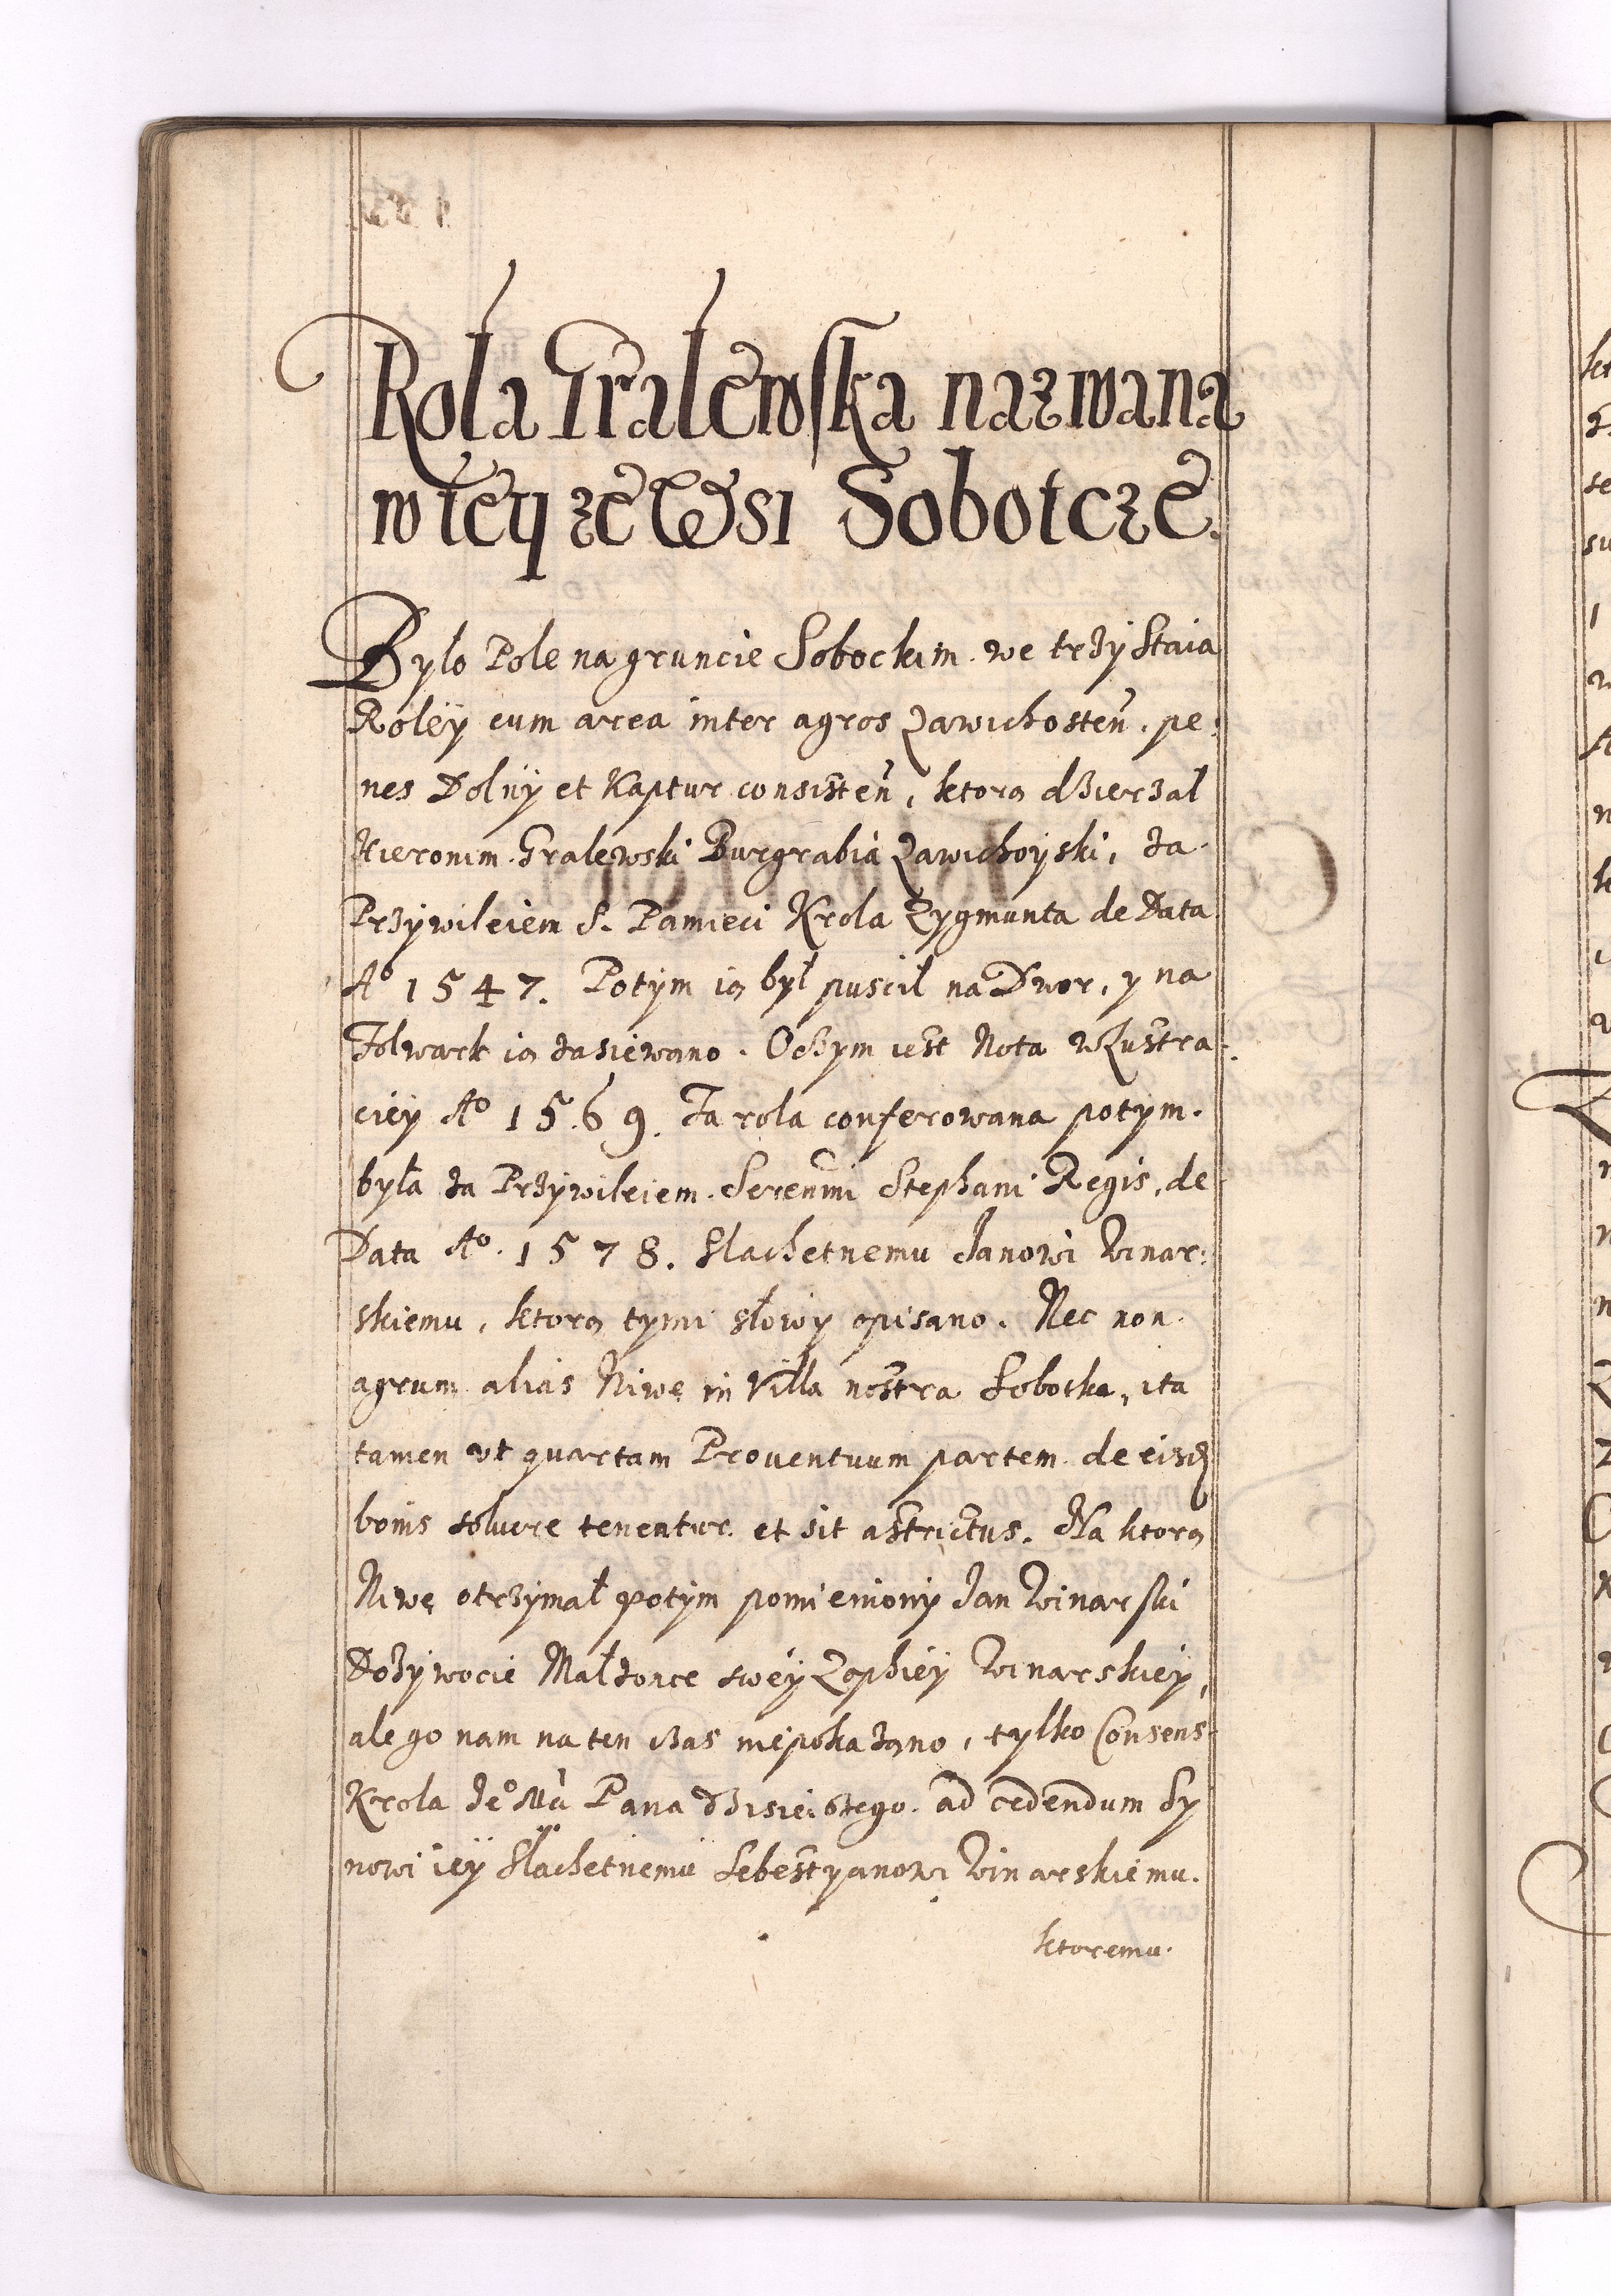 Rola Gralewska nazwana
w teyze Wsi Sobotcze.
Bylo Pole na gruncie Sobockim. we trzy Staia
Roley cum area inter agros Zawichosten̄. pe:
nes Dolny et Kaptur consisten̄, ktorą dzierzał
Hieronim. Gralewski Burgrabia Zawichoyski, za
Przywileiem S. Pamieci Krola Zygmunta de Data
Aº 1547. Potym ią był puscił na Dwor, y na
Folwark ią zasiewano. Oczym iest Nota w Lustra:
ciey Aº 1569. Ta rola conferowana potym.
była za Przywileiem. Serenmi Stephani Regis, de
Data Aº. 1578. Slachetnemu Janowi Winar:
skiemu, ktorą tymi słowy opisano. Nec non
agrum alias Niwę in Villa nostra Sobotka, ita
tamen vt quartam Prouentuum partem de eisd
bonis soluere teneatur et sit astrictus. Na ktorą
Niwę otrzymał potym pomieniony Jan Winarski
Dozywocie Małzonce swey Zophiey Winarskiey,
ale go nam na ten czas niepokazano, tylko Consens
Krola Jeº Mci Pana dzisieiszego. ad cedendum Sy
nowi iey Slachetnemu Sebestyanowi Winarskiemu.
ktoremu.